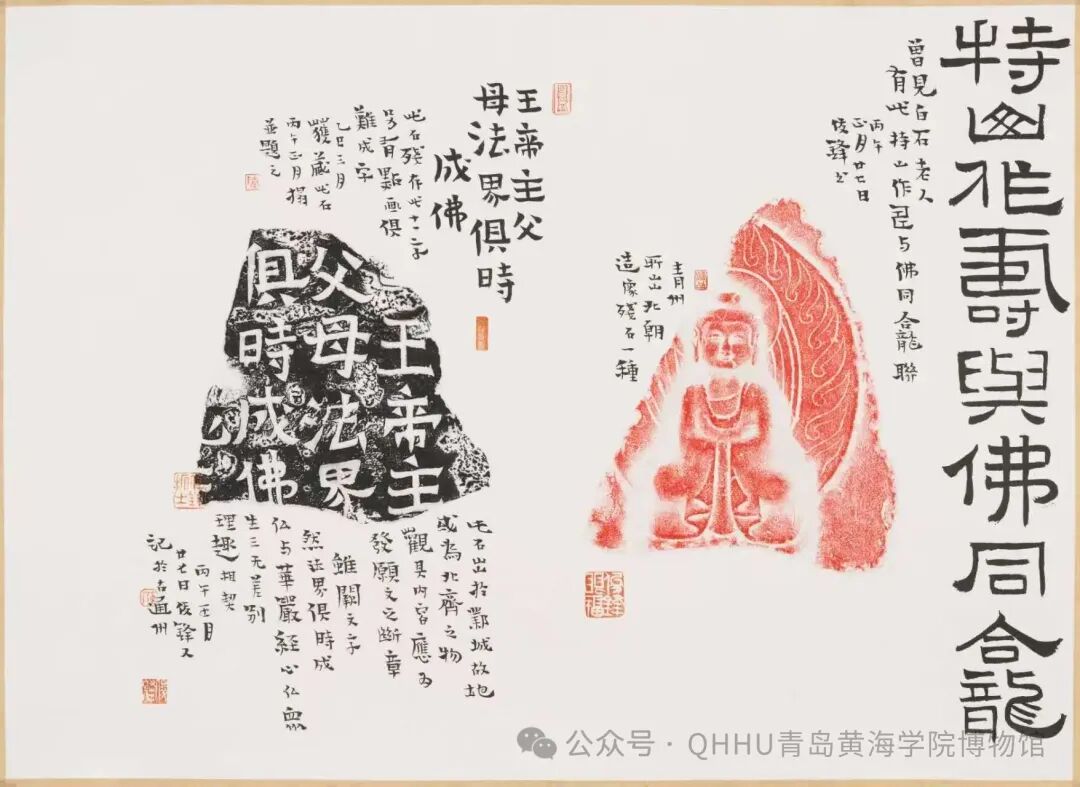 持山作壽與佛同龕
曾見白石老人
有此持山作壽与佛同龕聯
丙午
正月廿七日
俊鋒
青州
所出北朝
造像殘石一種
王帝主父
母法界俱時
成佛
此石殘存此十一字
另有點画俱
難成字
乙巳三月
獲藏此石
丙午正月搨
並題之
王帝主
父母法界
俱時成佛
此石出於鄴城故地
或為北齊之物
觀其内容應為
發願文之斷章
雖闕文字
然法界俱時成
仏与華嚴經心仏眾
生三无差別
理趣相契
丙午正月
廿七日俊鋒又
記於古通州
公众号 · QHHU青岛黄海学院博物馆